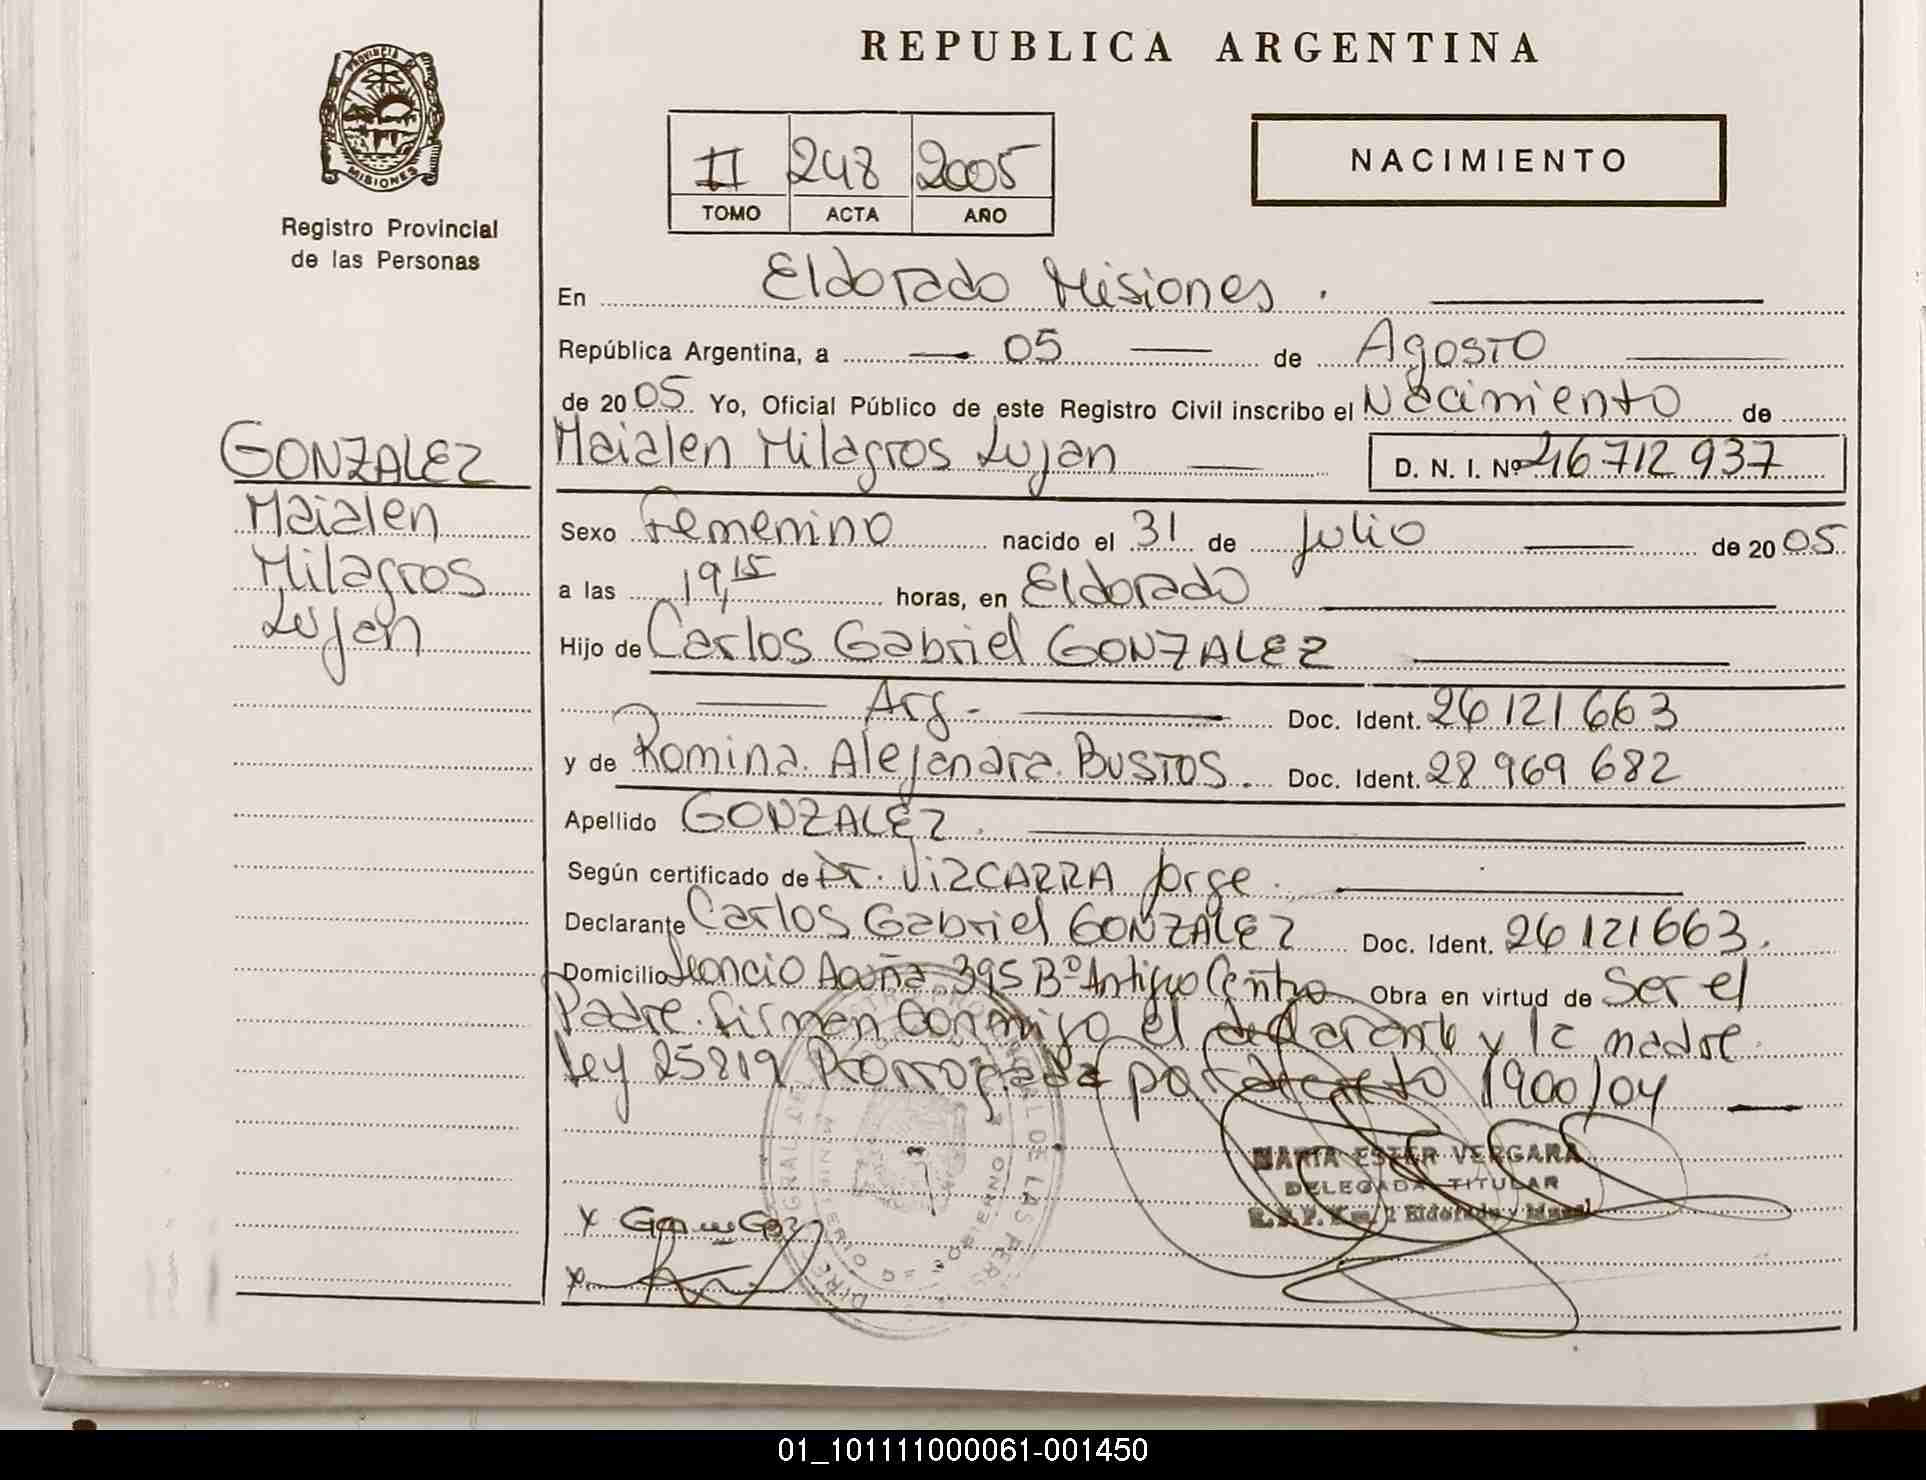 PROVINCIA DE
MISIONES
Registro Provincial
de las Personas
GONZALEZ
Maialen
Milagros
Lujan
REPUBLICA ARGENTINA
II 248 2005
TOMO ACTA AÑO
NACIMIENTO
En Eldorado Misiones.
República Argentina, a 05 de Agosto
de 2005 Yo, Oficial Público de este Registro Civil inscribo el Nacimiento de
Maialen Milagros Lujan D. N. I. Nº 46 712 937
Sexo Femenino nacido el 31 de Julio de 2005
a las 19,15 horas, en Eldorado
Hijo de Carlos Gabriel GONZALEZ
Arg. Doc. Ident. 26 121 663
y de Romina Alejandra BUSTOS. Doc. Ident. 28 969 682
Apellido GONZALEZ.
Según certificado de Dr. VIZCARRA Jorge.
Declarante Carlos Gabriel GONZALEZ Doc. Ident. 26 121 663.
Domicilio Leoncio Acuña 395 Bº Antiguo Centro Obra en virtud de Ser el
Padre. Firman conmigo el declarante y la madre.
Ley 25819 Prorrogada por decreto 1900/04
MARIA ESTER VERGARA
DELEGADA TITULAR
01_101111000061-001450